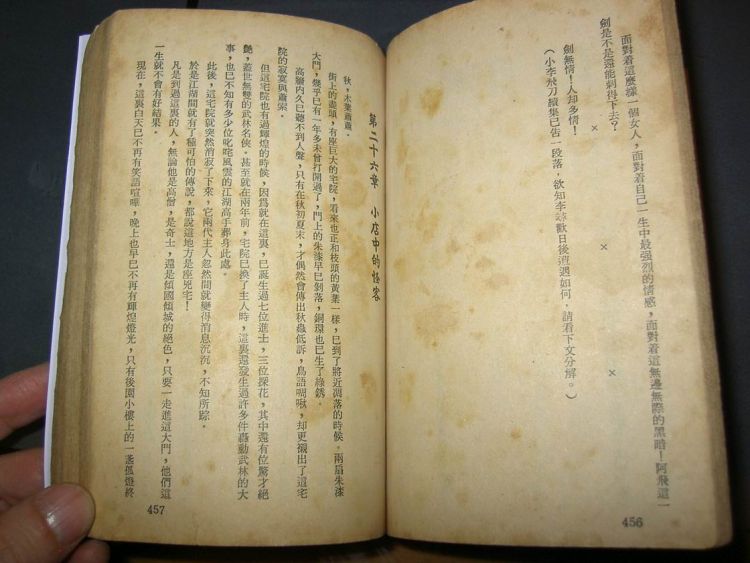 面對着這麽樣一個女人，面對着自己一生中最强烈的情感，面對着這無邊無際的黑暗！阿飛這一
劍是不是還能刺得下去？
×　×　×
劍無情！人却多情！
（小李飛刀續集已告一段落，欲知李尋歡日後遭遇如何，請看下文分解。）
456
第二十六章　小店中的怪客
秋，木葉蕭蕭。
街上的盡頭，有座巨大的宅院，看來也正和枝頭的黃葉一樣，已到了將近凋落的時候。兩扇朱漆
大門，幾乎已有一年多未曾打開過了，門上的朱漆早已剝落，銅環也已生了綠銹。
高牆內久已聽不到人聲，只有在秋初夏末，才偶然會傳出秋蟲低訴，鳥語啁啾，却更襯出了這宅
院的寂寞與蕭索。
但這宅院也有過輝煌的時候，因爲就在這裏，已誕生過七位進士，三位探花，其中還有位驚才絕
艷，蓋世無雙的武林名俠。甚至就在兩年前，宅院已換了主人時，這裏還發生過許多件轟動武林的大
事，也已不知有多少位叱咤風雲的江湖高手葬身此處。
此後，這宅院就突然消寂了下來，它兩代主人忽然間就變得消息沉沉，不知所踪。
於是江湖間就有了種可怕的傳說，都說這地方是座兇宅！
凡是到過這裏的人，無論他是高僧，是奇士，還是傾國傾城的絕色，只要一走進這大門，他們這
一生就不會有好結果。
現在，這裏白天已不再有笑語喧嘩，晚上也早已不再有輝煌燈光，只有後園小樓上的一盞孤燈終
457